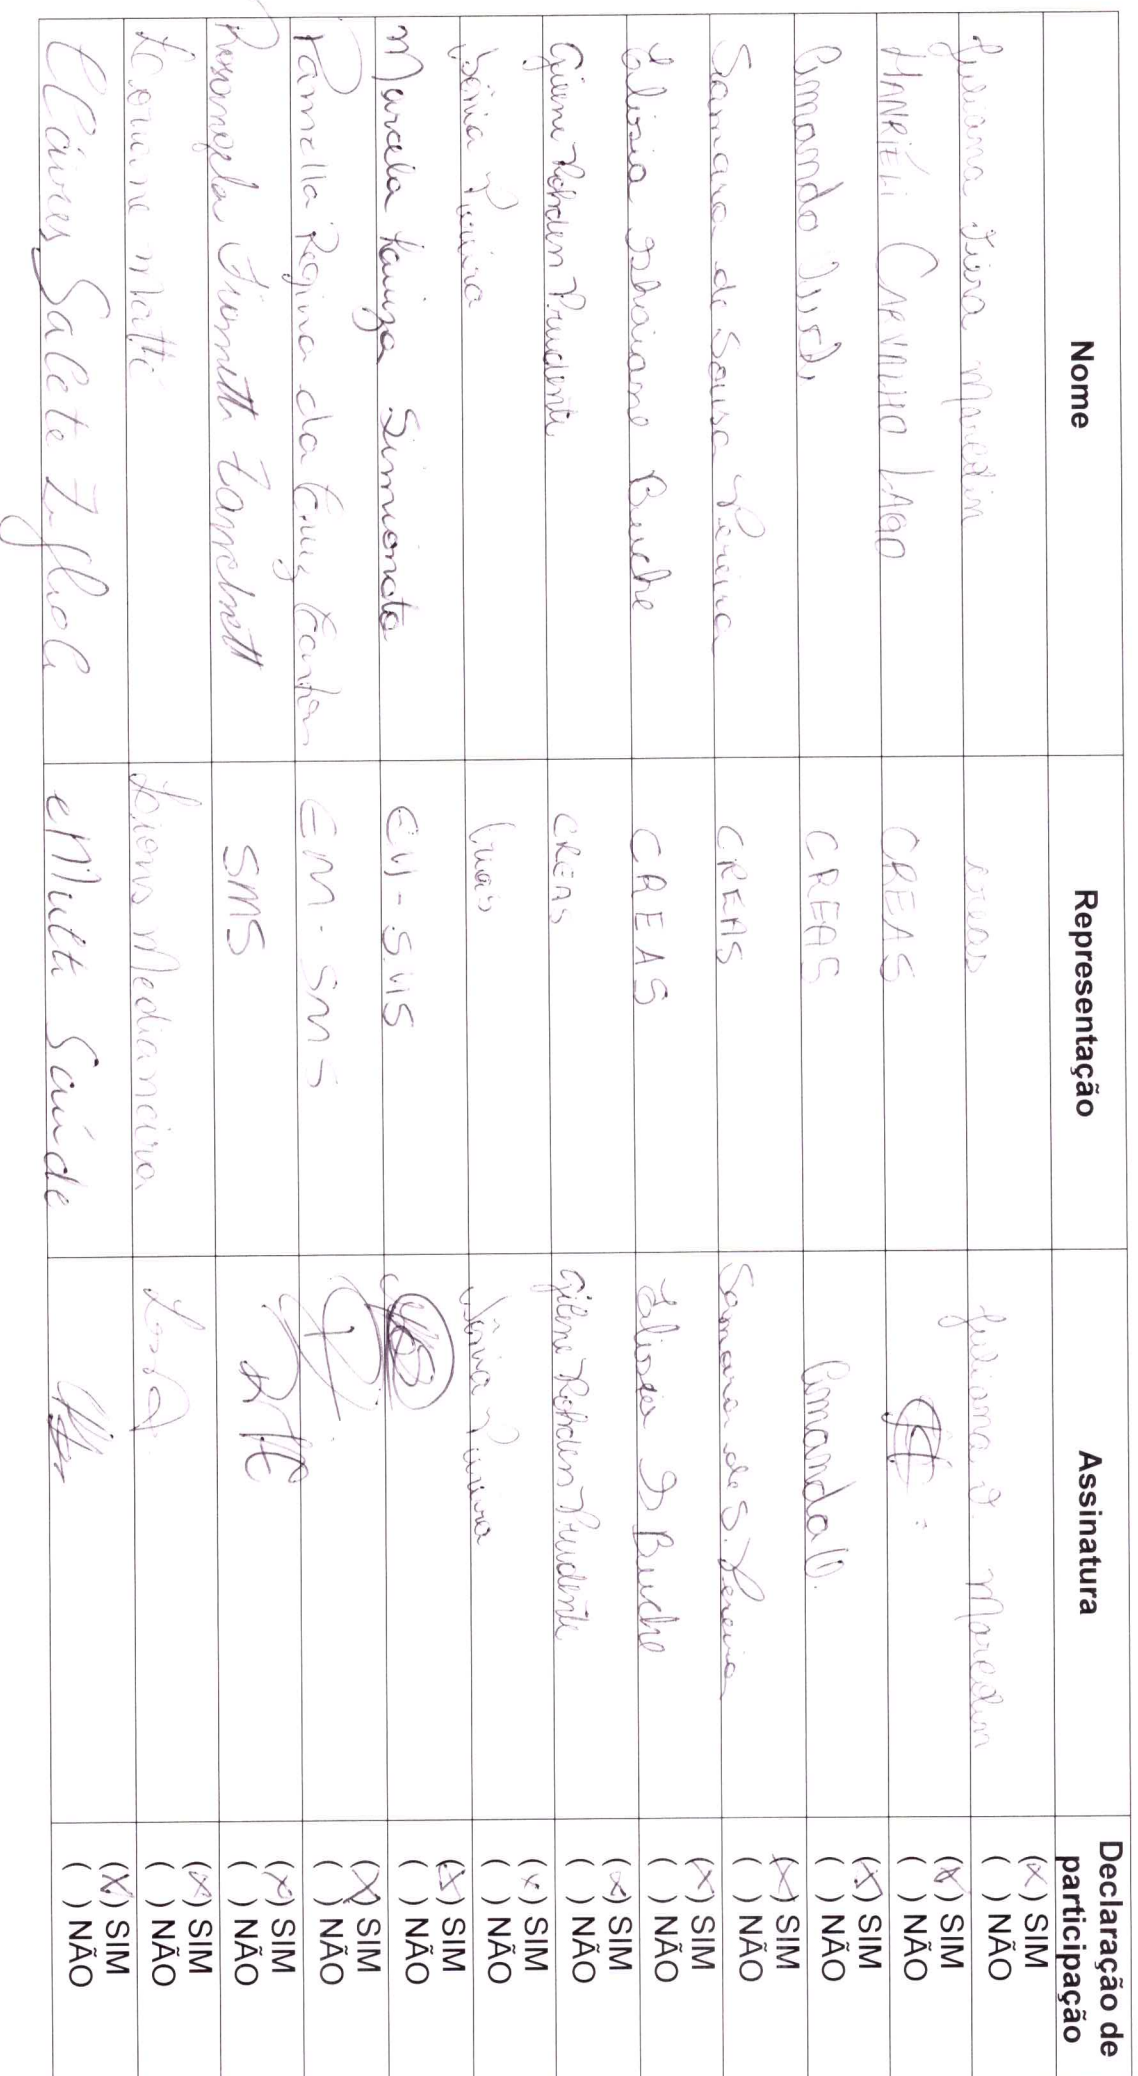 Nome Representação Assinatura Declaração de participação
Juliana Viera Marcolin creas Juliana V. Marcolin (x) SIM
( ) NÃO
HANRIÉLI CARVALHO LAGO CREAS (x) SIM
( ) NÃO
Amanda CREAS Amanda (x) SIM
( ) NÃO
Samara de Sousa Pereira CREAS Samara de S. Pereira (x) SIM
( ) NÃO
Buche CREAS Buche (x) SIM
( ) NÃO
Gilene Rohden Prudente CREAS Gilene Rohden Prudente (x) SIM
( ) NÃO
Vânia Pereira Vânia Pereira (x) SIM
( ) NÃO
Marcela Simionato EM - SMS (x) SIM
( ) NÃO
Pamella Regina da Cruz EM - SMS (x) SIM
( ) NÃO
Rosangela Zanchett SMS (x) SIM
( ) NÃO
Matté Medianeira (x) SIM
( ) NÃO
Salete eMulti Saúde (x) SIM
( ) NÃO